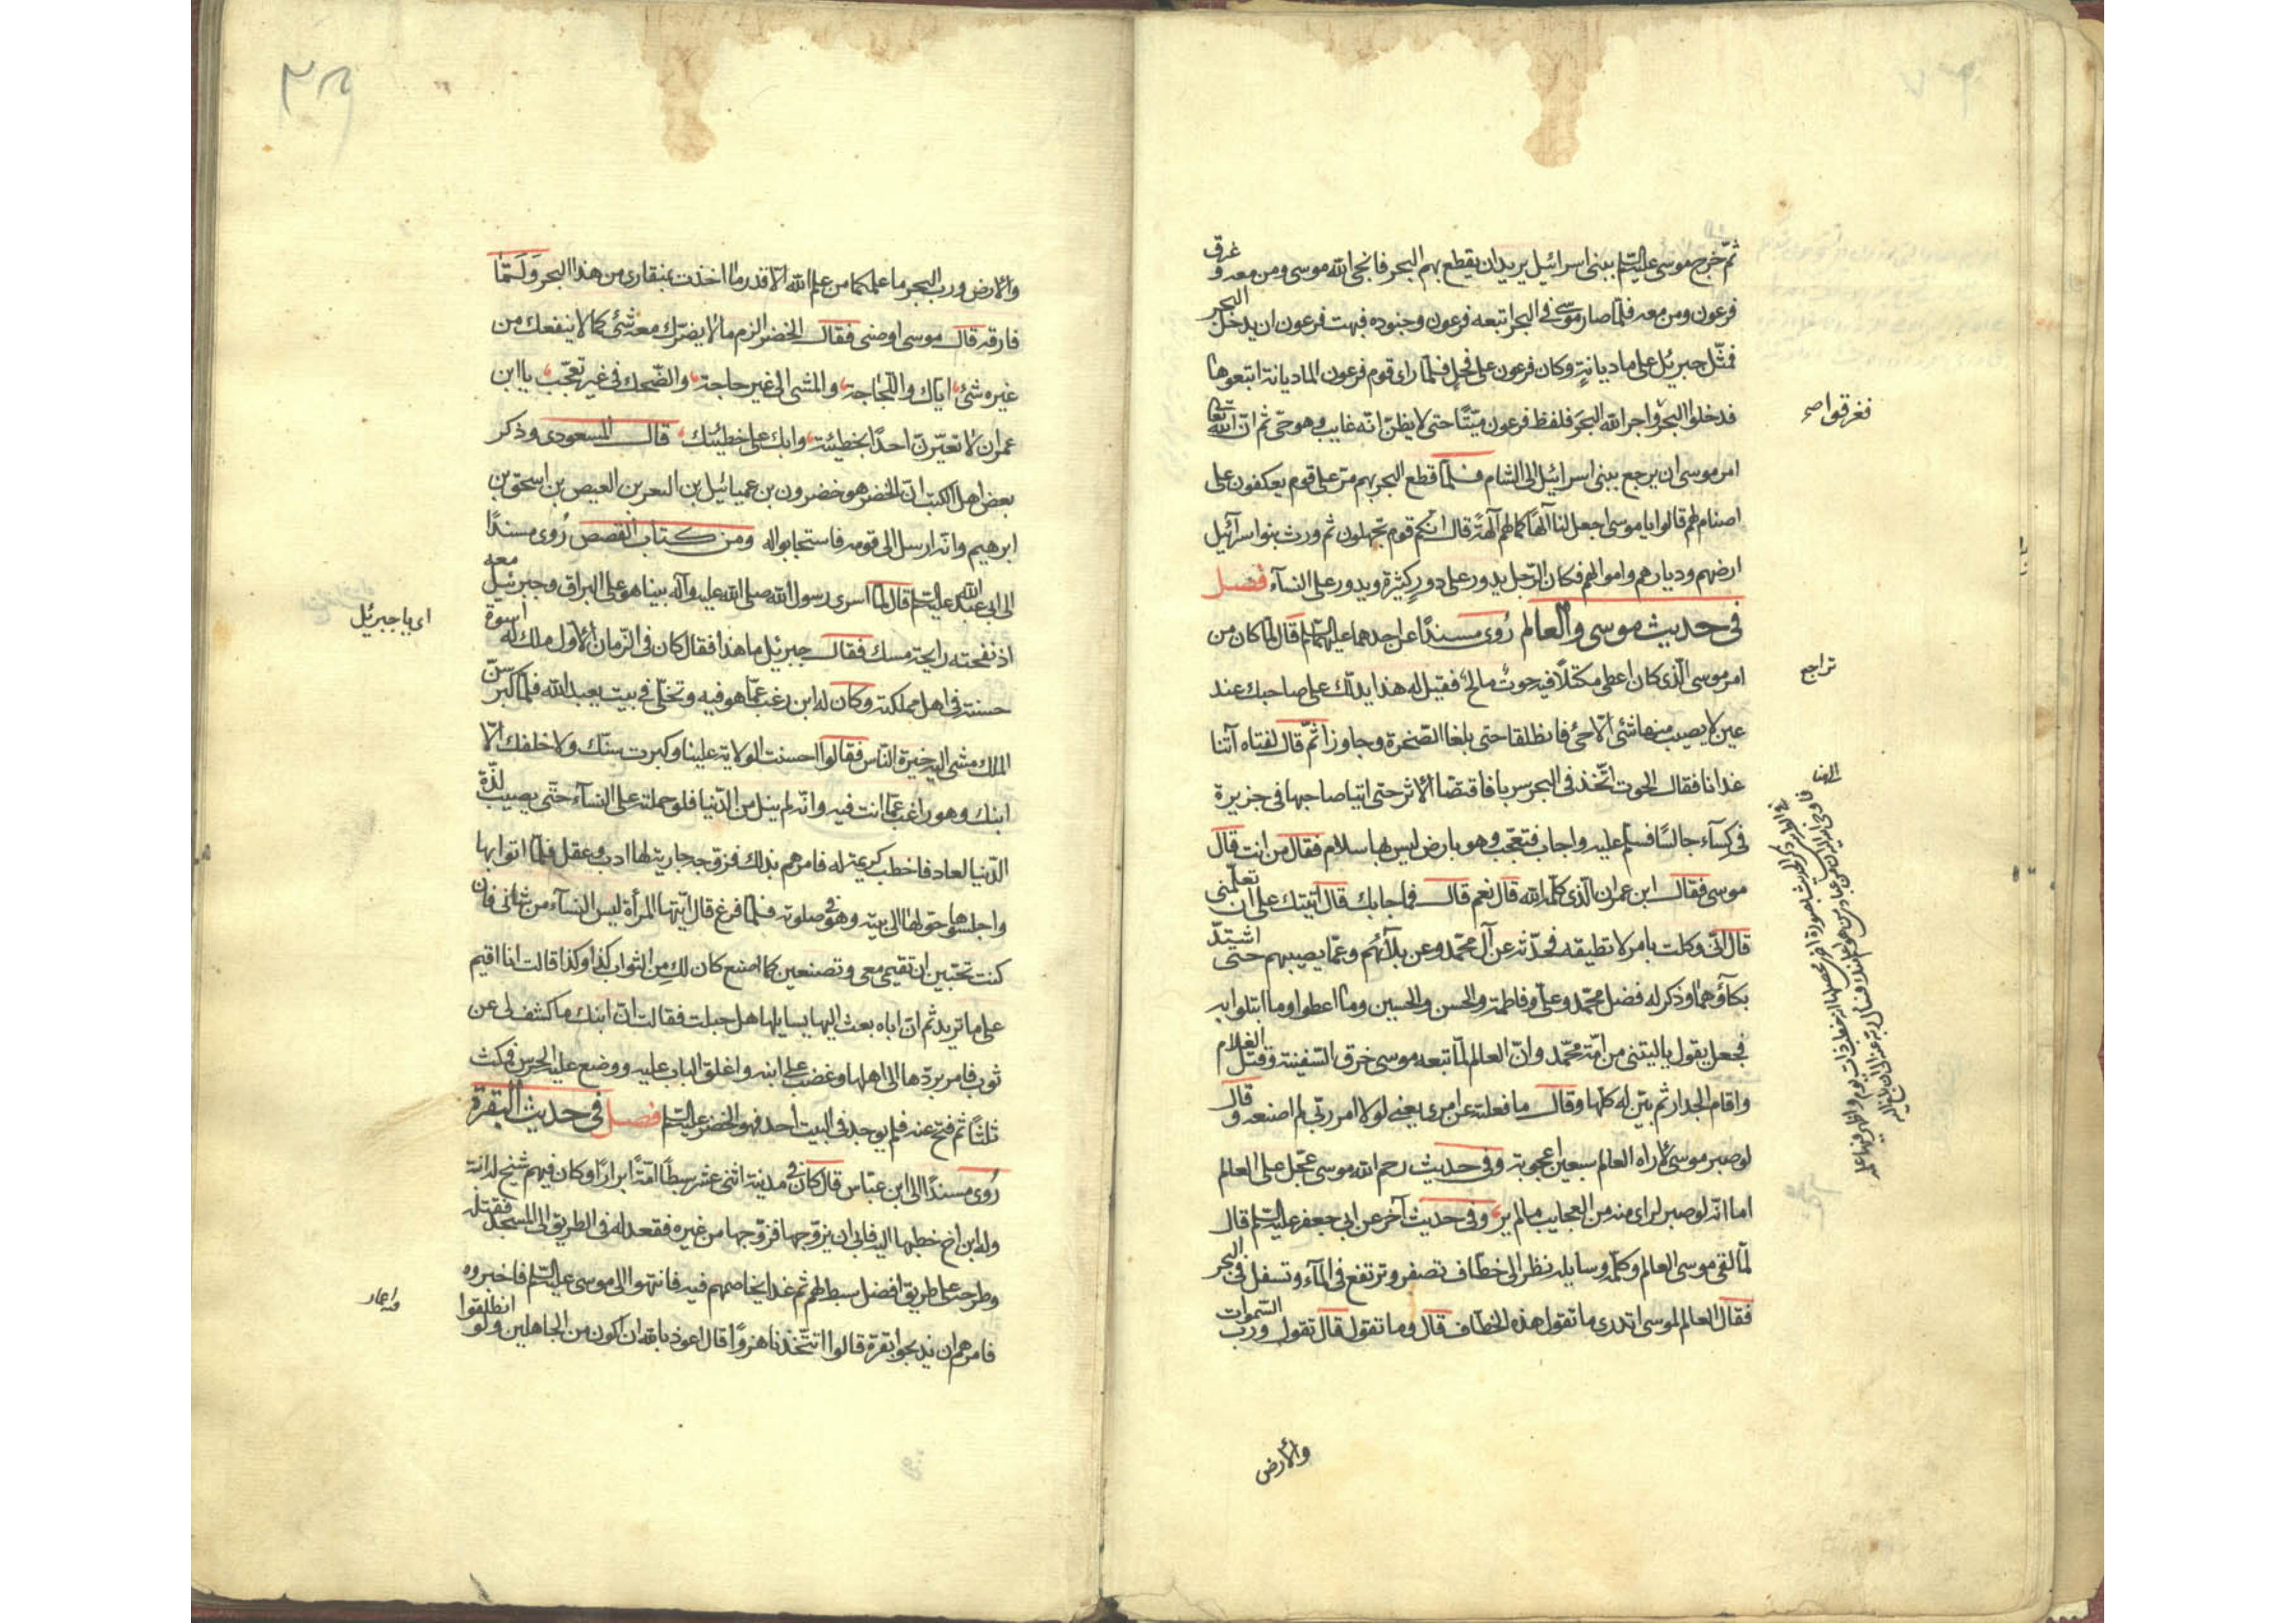 ثم خرج موسى عليه السلم ببنى اسرائيل يريد ان يقطع بهم البحر فانجى الله موسى ومن معه و غرق
فرعون ومن معه فلما صار موسى في البحر اتبعه فرعون وجنوده فهبت فرعون ان يدخل البحر
فمثّل جبرئيل على ماديانةٍ وكان فرعون على فحلٍ فلما راى قوم فرعون الماديانة اتبعوها
فدخلوا البحر واجر الله البحر فلفظ فرعون ميّتًا حتى لا يظنّ انه غايب وهو حىّ ثم ان الله تعا
فغرقوا صح
امر موسى ان يرجع ببنى اسرائيل الى الشام فلما قطع البحر بهم مرّ على قوم يعكفون على
اصنام لهم قالوا يا موسى اجعل لنا آلهًا كما لهم آلهة قال انكم قوم تجهلون ثم ورث بنوا سرآئيل
ارضهم وديارهم واموالهم فكان الرّجل يدور على دورٍ كثيرة ويدور على النسآء فصل
في حديث موسى والعالم رُوى مسندًا عن احدهما عليهما السلم قال لمّا كان من
امر موسى الّذى كان اعطى مكتلًا فيه حوتٌ مالحٌ فقيل له هذا يدلّك على صاحبك عند
تراجع
عين لا يصيب منها شئ الّا حىَّ فانطلقا حتى بلغا الصّخرة وجاوزا ثمّ قال لفتاه آتنا
غدانا فقال الحوت اتّخذ في البحر سربا فاقتصّا الاثر حتى اتيا صاحبها في جزيرة
في كسآء جالسًا فسلّم عليه واجاب فتعجّب وهو بارض ليس بها سلام فقال من انت قال
موسى فقال ابن عمران الّذى كلّمه الله قال نعم قال فما جابك قال اتيتك على ان تعلّمنى
قال انّى وكلت بامر لا تطيقه فحدّثه عن آل محمّد وعن بلآئهم وعمّا يصيبهم حتى اشتدّ
بكآؤهما وذكر له فضل محمّد وعلى وفاطمة والحسن والحسين وما اعطوا وما ابتلوا به
فجعل يقول يا ليتنى من امّة محمّد وانّ العالم لمّا تبعه موسى خرق السّفينة وقتل الغلام
واقام الجدار ثم بيّن له كلّها وقال ما فعلته عن امرى يعنى لولا امر ربّى لم اصنعه و قال
لو صبر موسى لاراه العالم سبعين اعجوبة وفى حديث رحم الله موسى عجّل على العالم
اما انّه لو صبر لراى منه من العجايب ما لم ير وفى حديث آخر عن ابى جعفر عليه السلم قال
لمّا لقى موسى العالم وكلّمه وسايله نظر الى خطّاف تصفر وترتفع في المآء وتسفل في البحر
فقال العالم لموسى اتدرى ما تقول هذه الخطّاف قال وما تقول قال تقول وربّ السّموات
والارض
والارض وربّ البحر ما علمكما من علم الله الّا قدر ما اخذت بمنقارى من هذا البحر ولَمّا
فارقه قال موسى اوصنى فقال الخضر الزم ما لا يضرّك معه شئ كما لا ينفعك من
غيره شئ ايّاك واللّجاجة والمشى الى غير حاجة والضّحك في غير تعجّب يا ابن
عمران لا تعيّرنّ احدًا بخطيئة وابك على خطيئتك قال المسعودى وذكر
بعض اهل الكتب انّ الخضر هو خضرون بن عميائيل بن العيص بن اسحق بن
ابرهيم وانّه ارسل الى قومه فاستجابوا له ومن كتاب القصص رُوى مسندًا
الى ابى عبد الله عليه السلم قال لمّا اسرى رسول الله صلى الله عليه وآله بينا هو على البراق وجبرئيل معه
اذ نفحته رايحة مسك فقال جبرئيل ما هذا فقال كان في الزّمان الاوّل ملك له اسوة
اى يا جبرئيل
حسنة في اهل مملكته وكان له ابن رغب عمّا هو فيه وتخلّى في بيت يعبد الله فلما كبر سنّ
الملك مشى اليه خيرة النّاس فقالوا احسنت الولاية علينا وكبرت سنّك ولا خلفك الّا
ابنك وهو راغب عمّا انت فيه وانّه لم ينل من الدّنيا فلو حملته على النسآء حتّى يصيب لذّة
الدّنيا لعاد فاخطب كريمة له فامرهم بذلك فزوّجه جارية لها ادب وعقل فلمّا اتوا بها
واجلسوها حولها الى بيته وهو في صلوته فلمّا فرغ قال ايّتها المرأة ليس النسآء من شانى فان
كنت تحبّين ان تقيمى معى وتصنعين كما اصنع كان لكِ من الثواب كذا وكذا قالت انا اقيم
على ما تريد ثم انّ اباه بعث اليها يسايلها هل حبلت فقالت انّ ابنك ما كشف لى عن
ثوب فامر بردّها الى اهلها وغضب على ابنه واغلق الباب عليه ووضع عليه الحرس فمكث
ثلثًا ثم فتح عنه فلم يوجد في البيت احد فهو الخضر عليه السلم فصل في حديث البقرة
رُوى مسندًا الى ابن عبّاس قال كان في مدينة اثنى عشر سبطًا امّةً ابرارًا وكان فيهم شيخ له ابنة
وله ابن اخ خطبها اليه فابى ان يزوّجها فزوّجها من غيره فقعد له في الطريق الى المسجد فقتله
وطرحه على طريق افضل سبط لهم ثم غدا يخاصمهم فيه فانتهوا الى موسى عليه السلم فاخبروه
فامرهم ان يذبحوا بقرة قالوا اتتّخذنا هزوًا قال اعوذ بالله ان اكون من الجاهلين ولو انطلقوا